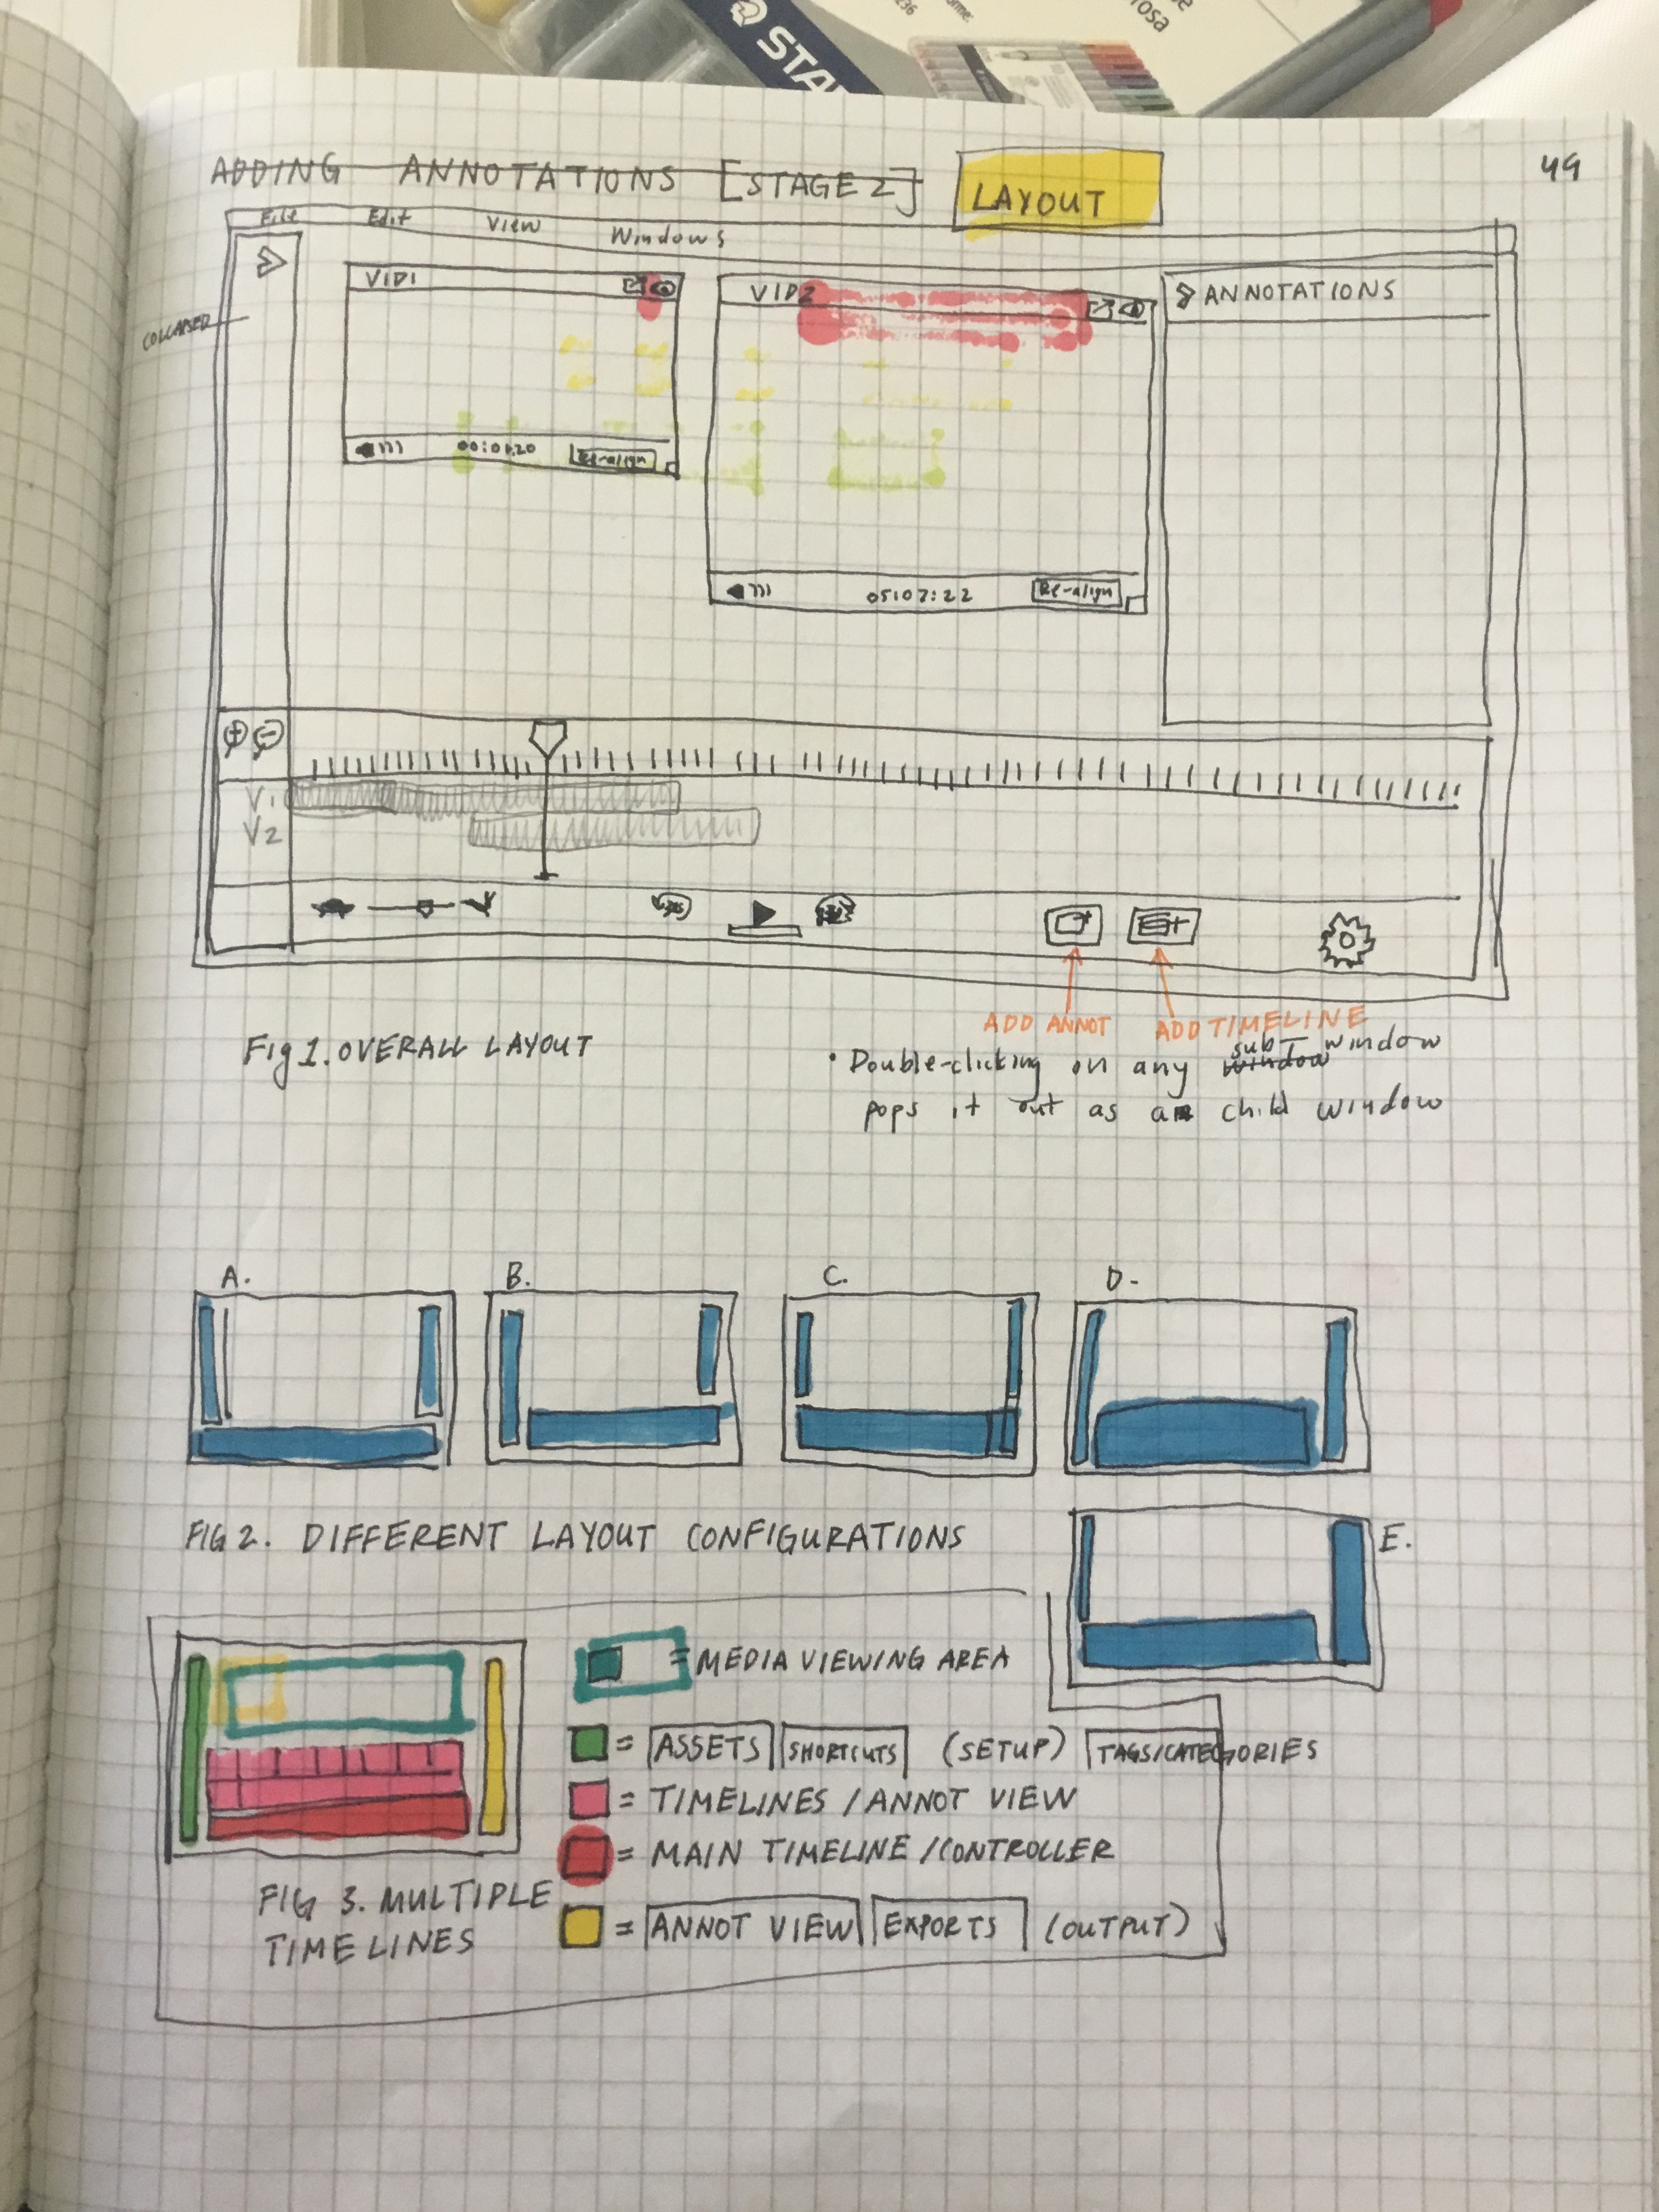 STA
rosa
ADDING ANNOTATIONS [STAGE 2] LAYOUT
49
File Edit View Windows
COLLAPSED
VID1
VID2
ANNOTATIONS
Re-align
05:07:22 Re-align
V1
V2
ADD ANNOT ADD TIMELINE
Fig 1. OVERALL LAYOUT
• Double-clicking on any window sub window
pops it out as a child window
A. B. C. D.
FIG 2. DIFFERENT LAYOUT CONFIGURATIONS
E.
= MEDIA VIEWING AREA
= ASSETS SHORTCUTS (SETUP) TAGS/CATEGORIES
= TIMELINES / ANNOT VIEW
= MAIN TIMELINE / CONTROLLER
= ANNOT VIEW EXPORTS (OUTPUT)
FIG 3. MULTIPLE
TIMELINES